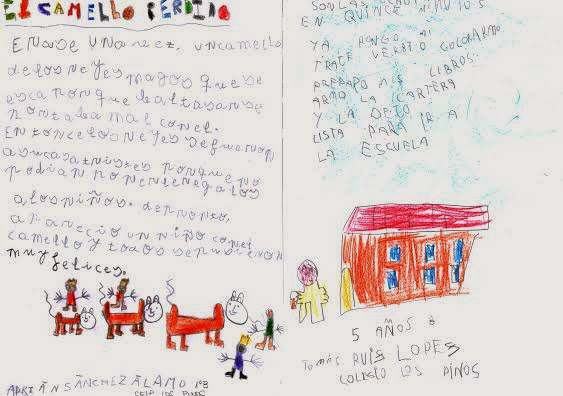 EL CAMELLO PERDIDO
ERASE UNA VEZ, UN CAMELLO
de los reyes magos que se
escaporque baltasar se
portaba mal con el.
Entonces los reyes se fueron
a su casa tristes porque no
podian poner regalos
a los niños. de pronto,
aparecio un niño con el
camello y todos se pusieron
muy felices.
ADRIÁN SÁNCHEZ ÁLAMO 1ºB
CEIP LOS PINOS
SON LAS
EN QUINCE MINUTOS
YA PONGO MI
TRAJE VERDE COLORADO
PREPARO MIS LIBROS
ARMO LA CARTERA
Y LA DEJO
LISTA PARA IR A
LA ESCUELA
5 AÑOS B
TOMÁS RUIS LOPES
COLEGIO LOS PINOS